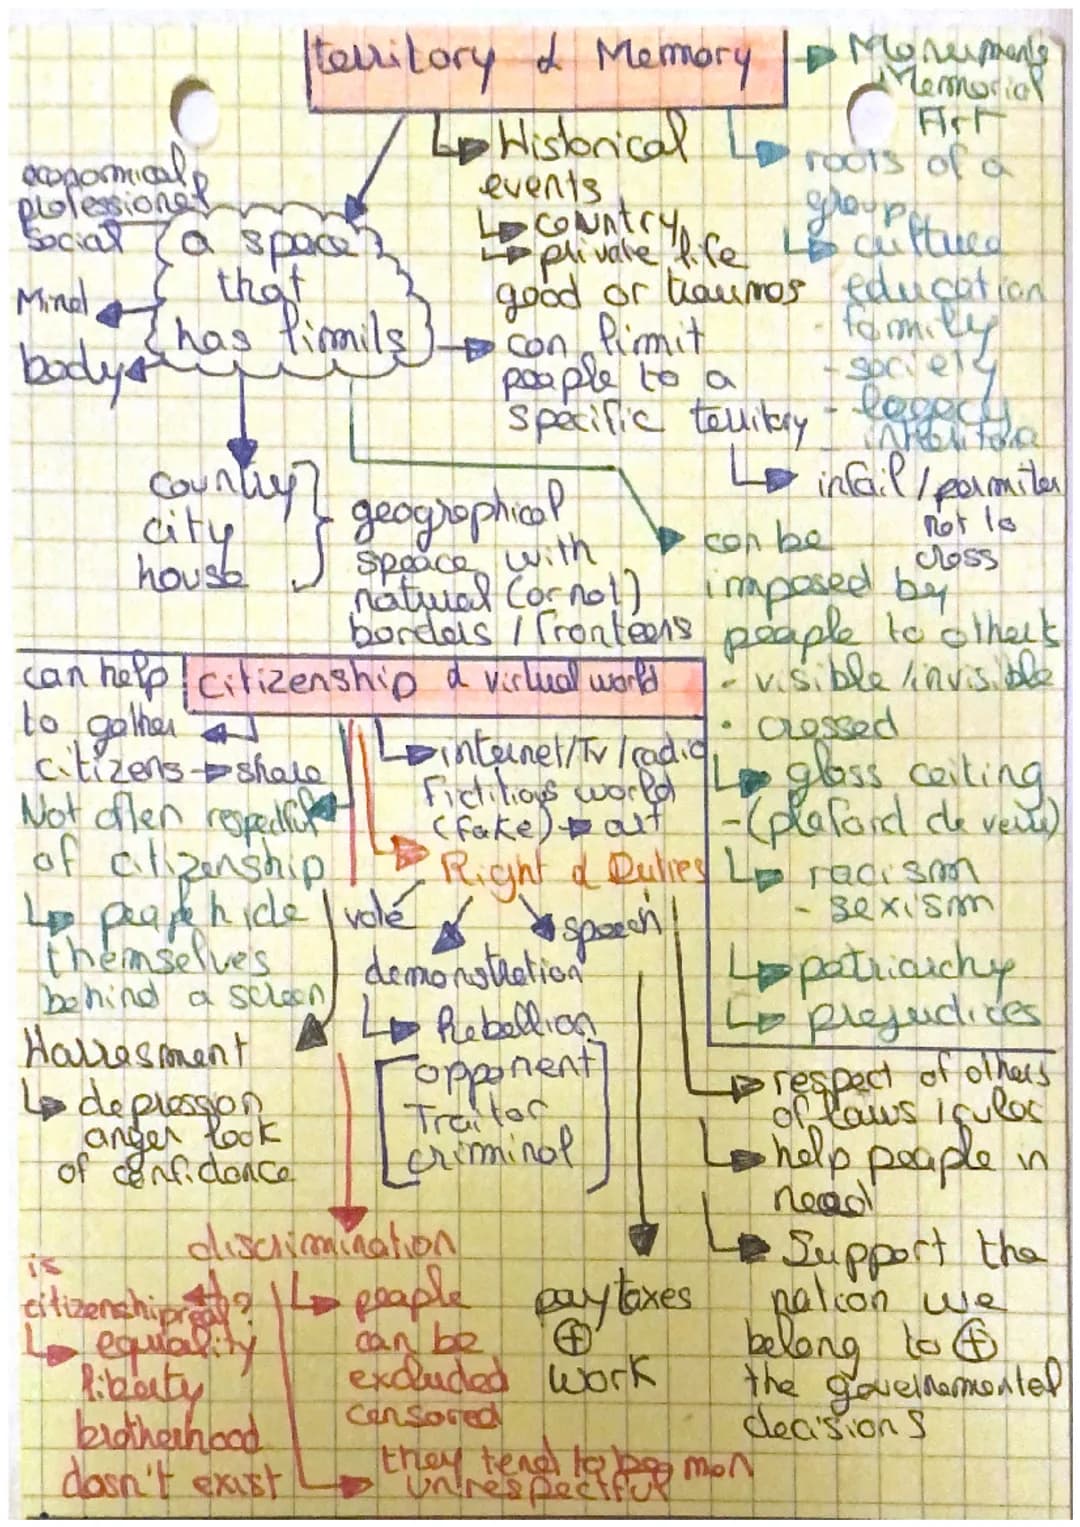 territory & Memory
Monuments
Memorial
Art
Historical
events
country
private life
good or traumas
can limit
people to a
specific territory
infail / permiter
not to
cross
roots of a
group
culture
education
- family
- society
- legacy
economical
professional
social
a space
that
has limits
Mind
body
country
city
house
geographical
speace with
natural (or not)
borders / fronteers
can be
imposed by
people to others
- visible / invisible
· crossed
glass ceiling
- (plafond de verre)
racism
- sexism
patriarchy
prejudices
citizenship & virtual world
can help
to gather
citizens share
Not often respectful
of citizenship
people hide
themselves
behind a screen
Harresment
depression
anger look
of confidance
internet/Tv/radio
Fictitious world
(fake) art
Right & Duties
vote
speech
demonstration
Rebellion
opponent
Traitor
criminal
respect of others
of laws
help people in
need
Support the
nation we
belong to +
the governemental
decisions
pay taxes
+
work
discrimination
people
can be
excluded
censored
they tend to be
unrespectful
is
citizenship real?
equality
liberty
brotherhood
dosn't exist